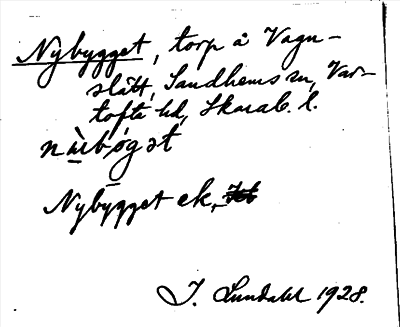 Nybygget, torp å Vagn-
slätt, Sandhems sn, Var-
tofta hd, Skarab. l.
nỳbøgət
Nybygget ek,
I. Lundahl 1928.